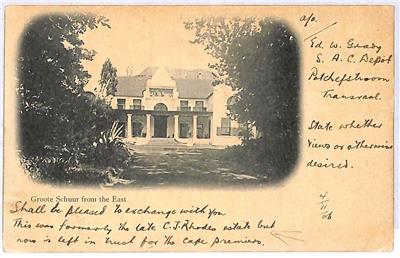 a/o.
Ed. W. Grady
S. A. C. Depot
Potchefstroom
Transvaal.
State whether
views or otherwise
desired.
4/11/06
Groote Schuur from the East
Shall be pleased to exchange with you
This was formerly the late C.J. Rhodes estate but
now is left in trust for the Cape premiers.